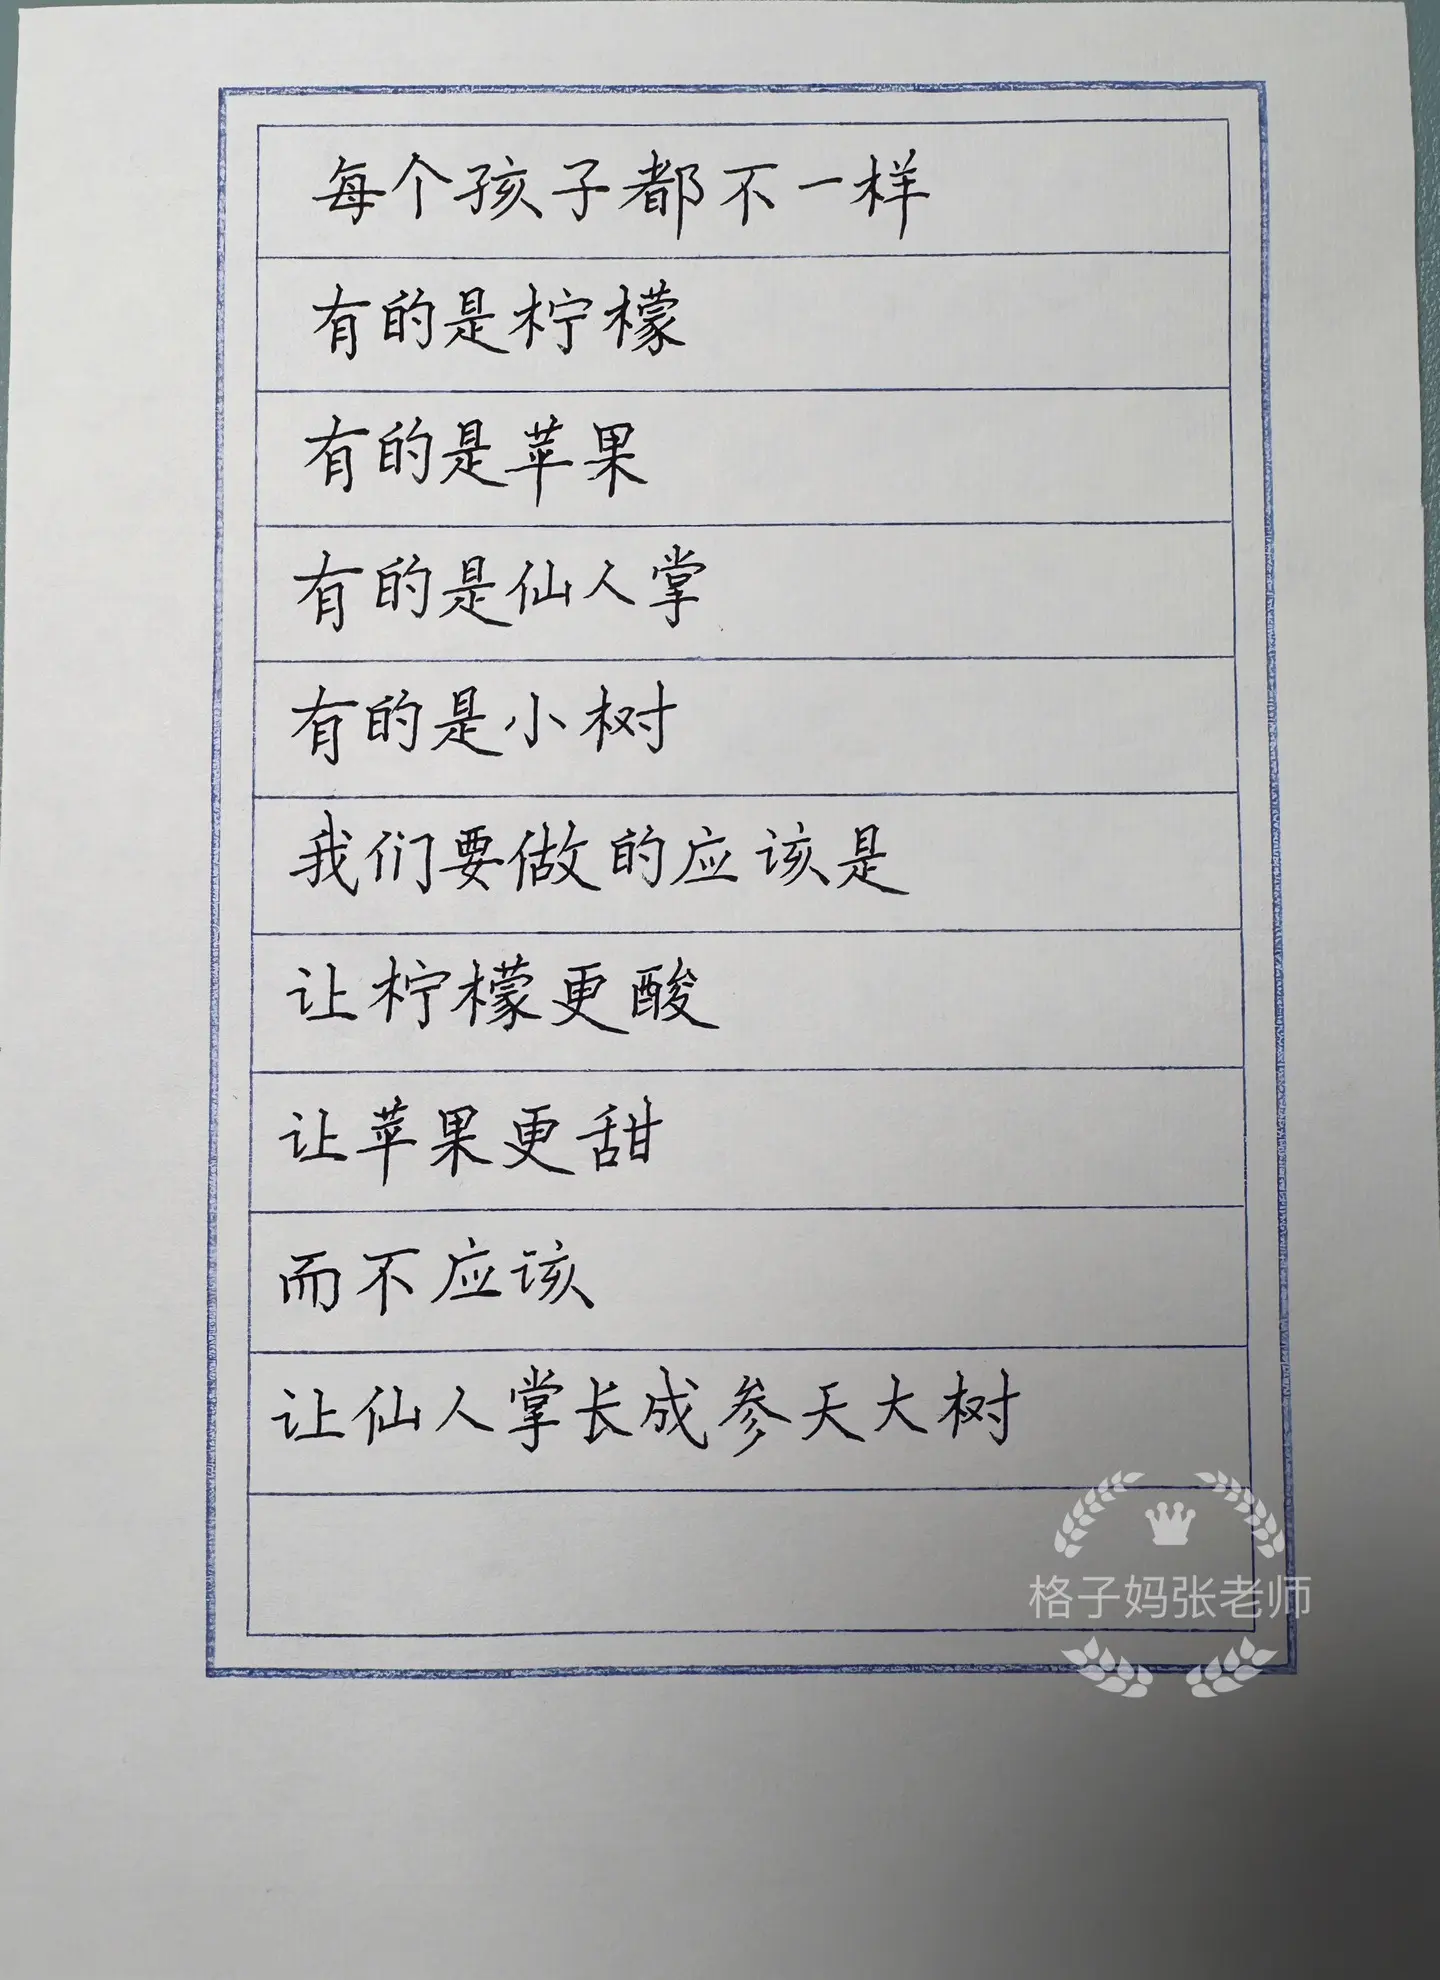 每个孩子都不一样
有的是柠檬
有的是苹果
有的是仙人掌
有的是小树
我们要做的应该是
让柠檬更酸
让苹果更甜
而不应该
让仙人掌长成参天大树
格子妈张老师